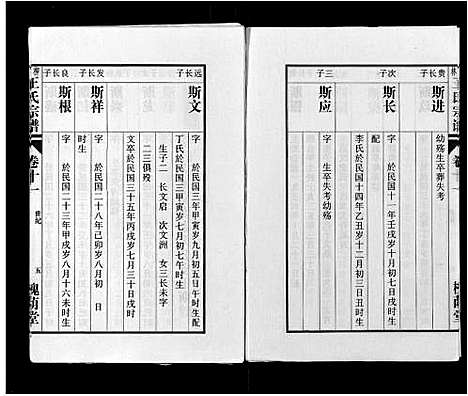 王氏宗谱
贵长子
斯进
幼殇生卒葬失考
次子
斯长
字 於民国十一年壬戌岁八月初七日戌时生
配
李氏於民国十四年乙丑岁十二月初三日丑时生
三子
斯应
字 生卒失考幼殇
远长子
斯文
字 於民国三年甲寅岁九月初五日午时生配
丁氏於民国三年甲寅岁七月初七午时生
生子二 长文启 次文洲 女三长未字
二三俱殁
文卒於民国三十五年丙戌岁七月三十日戌时
发长子
斯祥
字 於民国二十八年己卯岁八月初 日
时生
良长子
斯根
字 於民国二十三年甲戌岁八月十六未时生
王氏宗谱
卷十一
世纪
五
槐荫堂